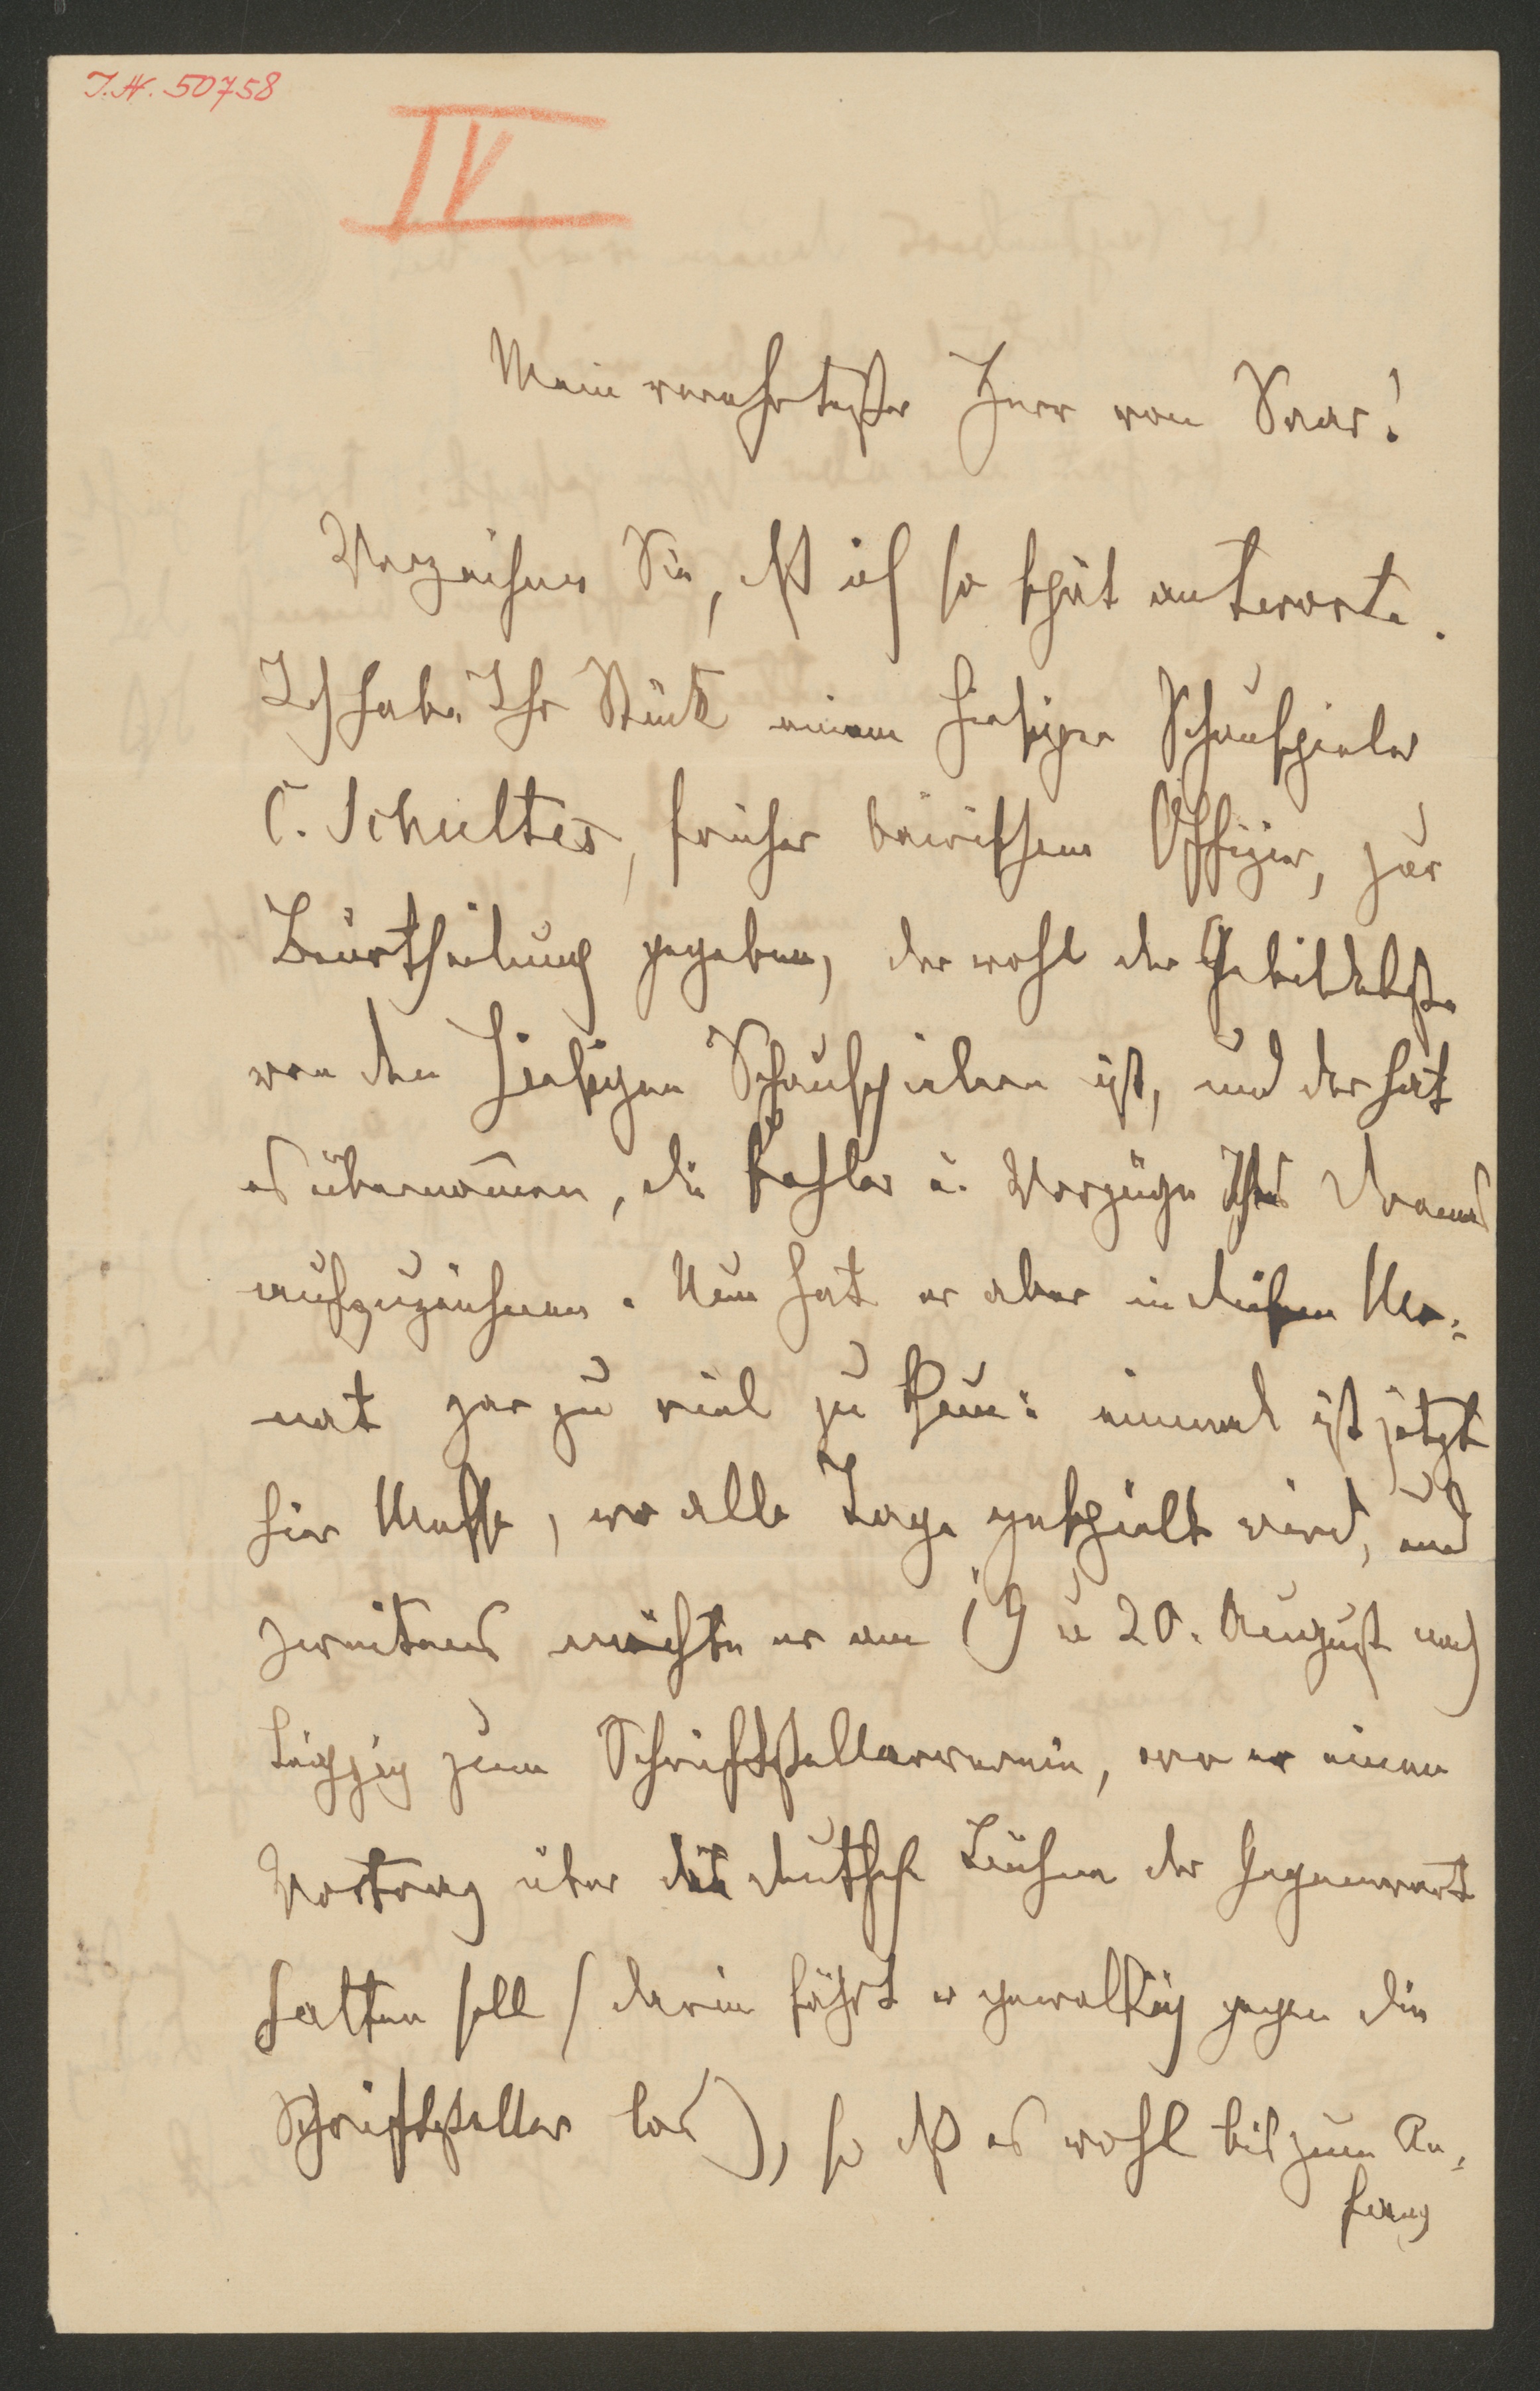 I.N. 50758
IV
Mein verehrtester Herr von Saar!
Verzeihen Sie, daß ich so spät antworte.
Ich habe Ihr Stück einem hiesigen Schauspieler
C. Schultes, früher bairischem Offizier, zur
Beurtheilung gegeben, der wohl der Gebildetste
von den hiesigen Schauspielern ist, und der hat
es übernom̅en, die Fehler u. Vorzüge Ihres Dramas
aufzuzeichnen. Nun hat er aber in diesem Mo-
nat gar zu viel zu thun: einmal ist jetzt
hier Messe, wo alle Tage gespielt wird, und
zweitens möchte er am 19 u 20. August nach
Leipzig zum Schriftstellerverein, wo er einen
Vortrag über die deutsche Bühne der Gegenwart
halten soll (darin fährt er gewaltig gegen die
Schriftsteller los), so daß es wohl bis zum An-
fang